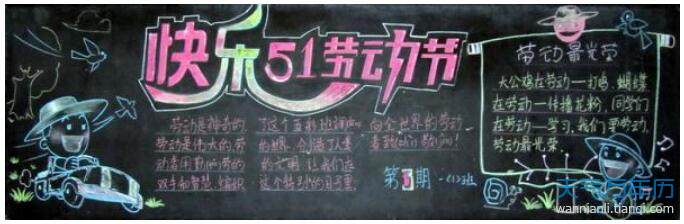 快乐51劳动节
劳动是神奇的,
劳动是伟大的,劳
动者用勤劳的
双手和智慧,编织
了这个五彩斑斓的
的世界,创造了人类
的文明。让我们在
这个特别的日子里,
向全世界的劳动
者致
第5期
劳动最光荣
大公鸡在劳动—打鸣、蝴蝶
在劳动—传播花粉,同学们
在劳动—学习,我们要劳动,
劳动最光荣。
天气万年历
wannianli.tianqi.com